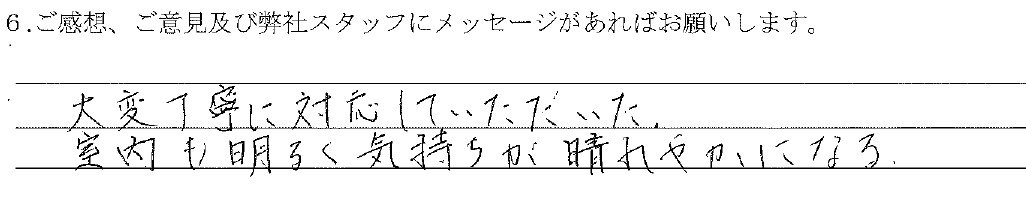 6.ご感想、ご意見及び弊社スタッフにメッセージがあればお願いします。
大変丁寧に対応していただいた.
室内も明るく気持ちが晴れやかになる.